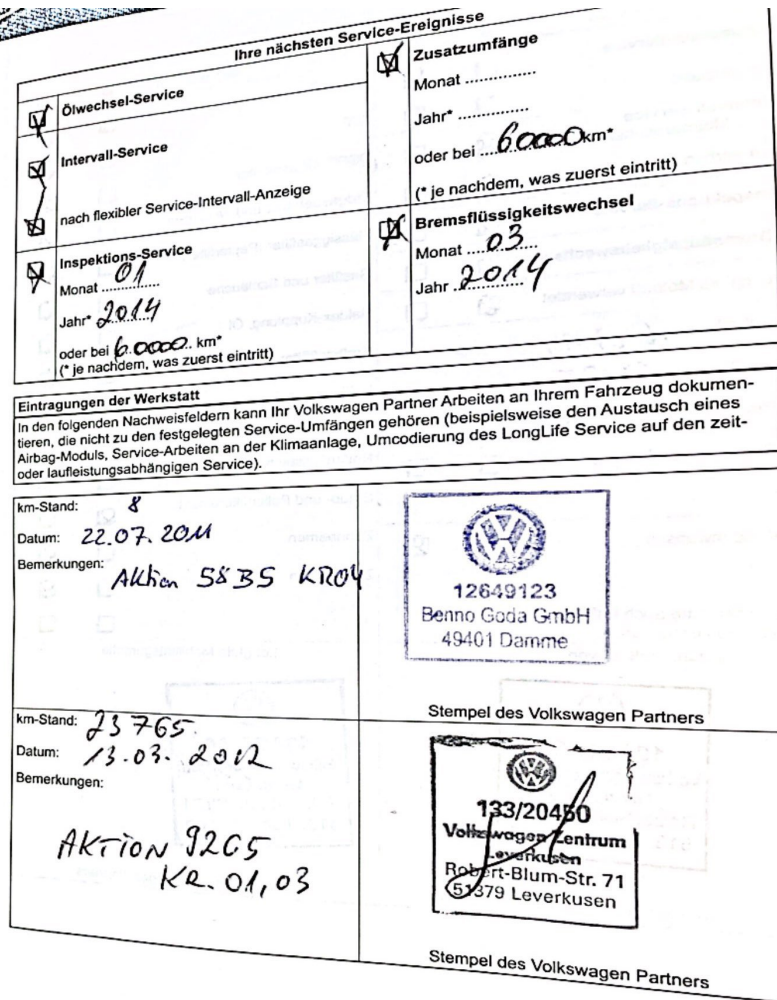 Ihre nächsten Service-Ereignisse
Ölwechsel-Service
Intervall-Service
nach flexibler Service-Intervall-Anzeige
Inspektions-Service
Monat 01
Jahr* 2014
oder bei 60000 km*
(* je nachdem, was zuerst eintritt)
Zusatzumfänge
Monat ...............
Jahr* ...............
oder bei 60000 km*
(* je nachdem, was zuerst eintritt)
Bremsflüssigkeitswechsel
Monat 03
Jahr 2014
Eintragungen der Werkstatt
In den folgenden Nachweisfeldern kann Ihr Volkswagen Partner Arbeiten an Ihrem Fahrzeug dokumen-
tieren, die nicht zu den festgelegten Service-Umfängen gehören (beispielsweise den Austausch eines
Airbag-Moduls, Service-Arbeiten an der Klimaanlage, Umcodierung des LongLife Service auf den zeit-
oder laufleistungsabhängigen Service).
km-Stand: 8
Datum: 22.07.2011
Bemerkungen:
Aktion 58B5 KR04
12649123
Benno Goda GmbH
49401 Damme
Stempel des Volkswagen Partners
km-Stand: 23765
Datum: 13.03.2012
Bemerkungen:
AKTION 92C5
KR. 01,03
133/20450
Volkswagen Zentrum
Leverkusen
Robert-Blum-Str. 71
51379 Leverkusen
Stempel des Volkswagen Partners